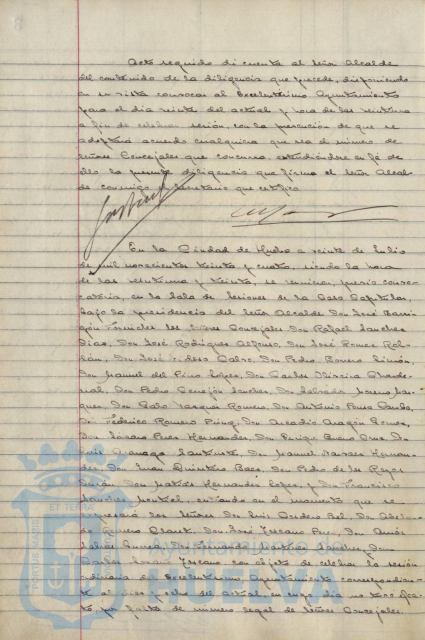 Acto seguido di cuenta al señor Alcalde
del contenido de la diligencia que precede, disponiendo
en su vista convocar al Excelentísimo Ayuntamiento
para el día veinte del actual y hora de las veintiuna
a fin de celebrar sesión, con la prevención de que se
adoptará acuerdo cualquiera que sea el número de
señores Concejales que concurra, extendiéndose en fe de
ello la presente diligencia que firma el señor Alcal-
de conmigo el Secretario que certifico
En la Ciudad de Huelva a veinte de Julio
de mil novecientos treinta y cuatro, siendo la hora
de las veintiuna y treinta, se reunieron, previa convo-
catoria, en la Sala de Sesiones de la Casa Capitular,
bajo la presidencia del señor Alcalde Don José Barri-
gón Fornieles los señores Concejales Don Rafael Sánchez
Díaz, Don José Rodríguez Alfonso, Don José Ponce
Don José Tejero Don Pedro Borrero Limón,
Don Manuel del Pino López, Don Carlos Oliveira
Don Pedro Cerrejón Sánchez, Don Salvador Moreno Már-
quez, Don Pablo Vázquez Romero, Don Antonio Pousa
Don Federico Romero Don Arcadio Aragón Gómez,
Don Pérez Hernández, Don Enrique Bueno Cruz, Don
Luis Don Manuel Navarro Hernán-
dez, Don Juan Quintero Báez, Don Pedro de los Reyes
Durán, Don Matías Hernández López, y Don Francisco
Sánchez entrando en el momento que se
expresará los señores Don Luis Cordero Bel, Don
Romero Don José Toscano Don Amós
Don Fernando Sánchez, Don
Carlos Toscano con objeto de celebrar la sesión
ordinaria del Excelentísimo Ayuntamiento correspondien-
te al diez y ocho del actual, en cuyo día no tuvo efec-
to por falta de número legal de señores Concejales.
PORTUS MARIS
ET TERRAE
Ayuntamiento
HUELVA